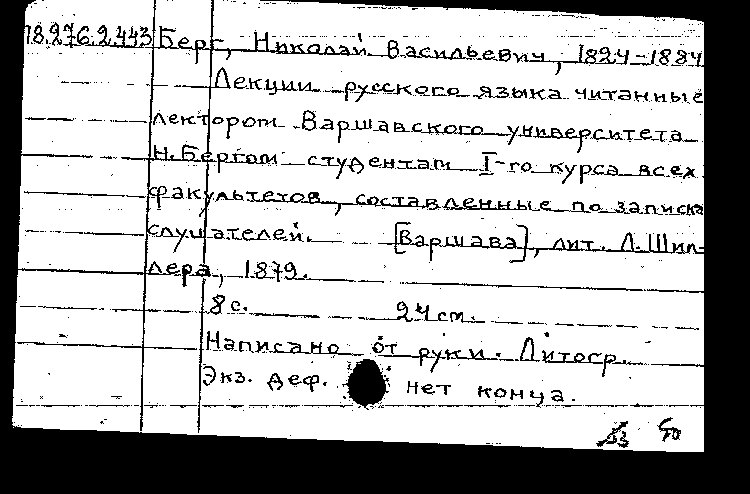 18.276.2.443 Берг, Николай Васильевич, 1824-1884
Лекции русского языка читанные
лектором Варшавского университета
Н.Бергом студентам I-го курса всех
факультетов, составленные по записка
слушателей. [Варшава], лит. Л.Шил-
лера, 1879.
8 с. 24 см.
Написано от руки. Литогр.
Экз. деф. нет конца.